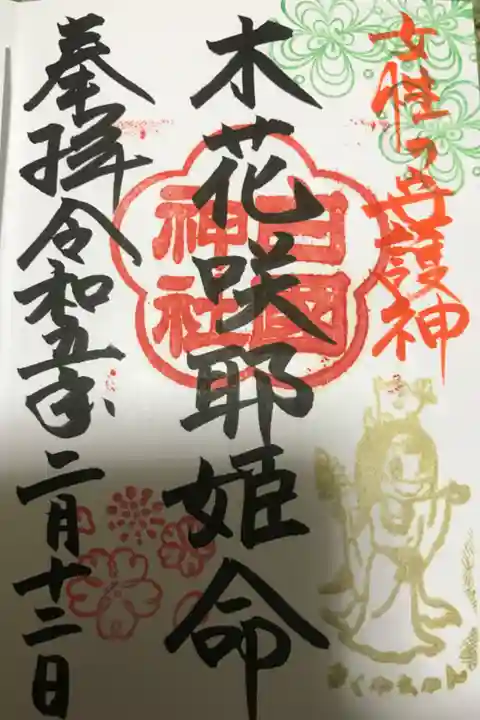 女性の守護神
木花咲耶姫命
白國
神社
奉拝令和五年二月十二日
さくやちゃん